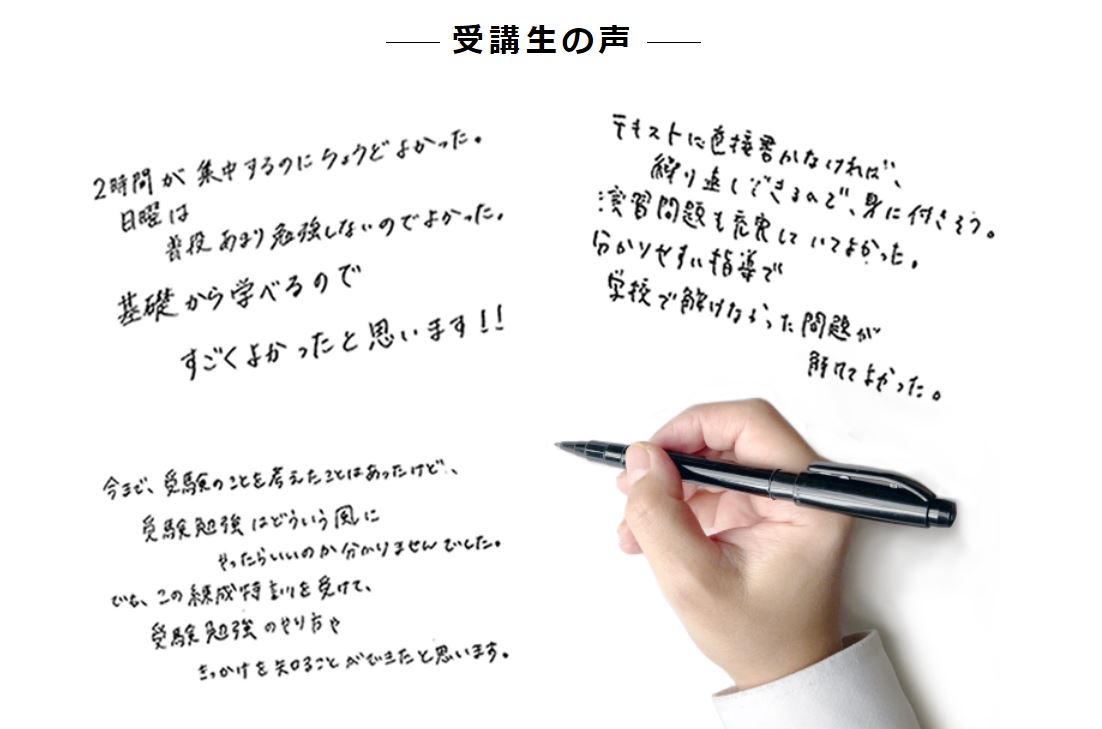 受講生の声
2時間が集中するのにちょうどよかった。
日曜は
普段あまり勉強しないのでよかった。
基礎から学べるので
すごくよかったと思います!!
テキストに直接書かなければ、
繰り返しできるので、身に付きそう。
演習問題も充実していてよかった。
分かりやすい指導で
学校で解けなかった問題が
解けてよかった。
今まで、受験のことを考えたことはあったけど、
受験勉強はどういう風に
やったらいいのか分かりませんでした。
でも、この練成特訓を受けて、
受験勉強のやり方や
きっかけを知ることができたと思います。